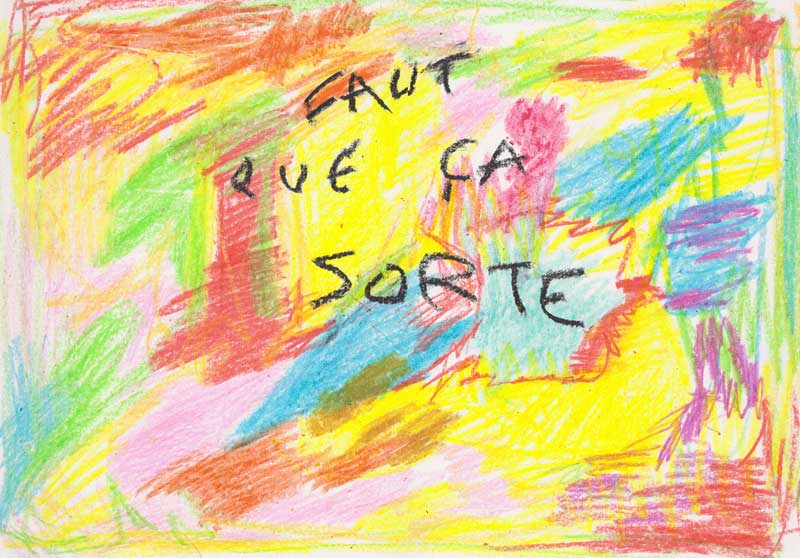 FAUT
QUE ÇA
SORTE